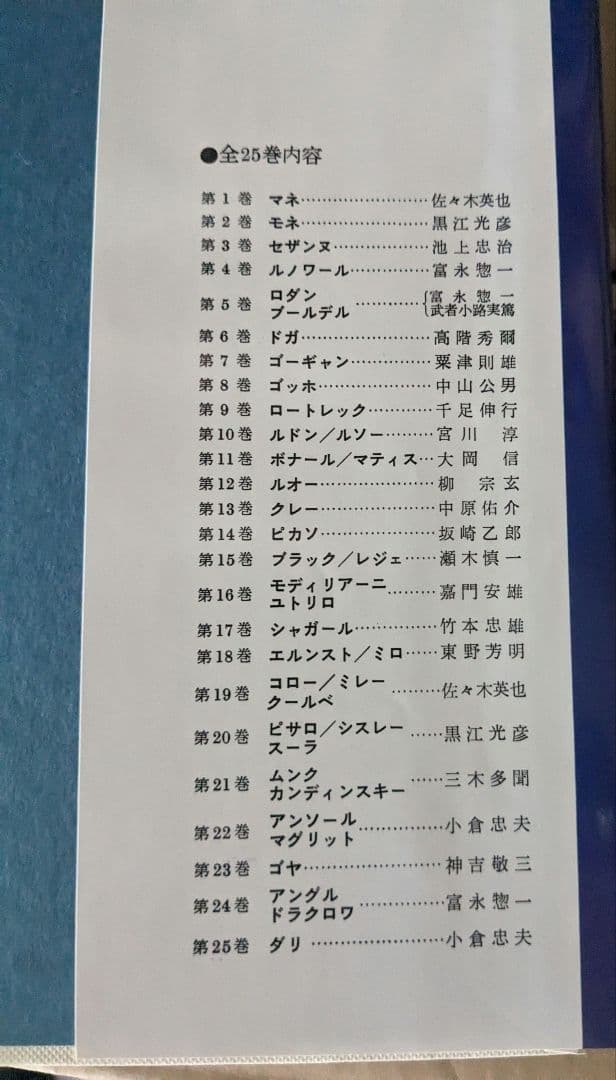 ●全25巻内容
第1巻 マネ……………………佐々木英也
第2巻 モネ……………………黒江光彦
第3巻 セザンヌ………………池上忠治
第4巻 ルノワール……………富永惣一
第5巻 ロダン ブールデル…………{富永惣一 武者小路実篤
第6巻 ドガ……………………高階秀爾
第7巻 ゴーギャン……………粟津則雄
第8巻 ゴッホ…………………中山公男
第9巻 ロートレック…………千足伸行
第10巻 ルドン／ルソー………宮川淳
第11巻 ボナール／マティス…大岡信
第12巻 ルオー…………………柳宗玄
第13巻 クレー…………………中原佑介
第14巻 ピカソ…………………坂崎乙郎
第15巻 ブラック／レジェ……瀬木慎一
第16巻 モディリアーニ ユトリロ………嘉門安雄
第17巻 シャガール……………竹本忠雄
第18巻 エルンスト／ミロ……東野芳明
第19巻 コロー／ミレー クールベ………佐々木英也
第20巻 ピサロ／シスレー スーラ……黒江光彦
第21巻 ムンク カンディンスキー……三木多聞
第22巻 アンソール マグリット……………小倉忠夫
第23巻 ゴヤ……………………神吉敬三
第24巻 アングル ドラクロワ……………富永惣一
第25巻 ダリ……………………小倉忠夫